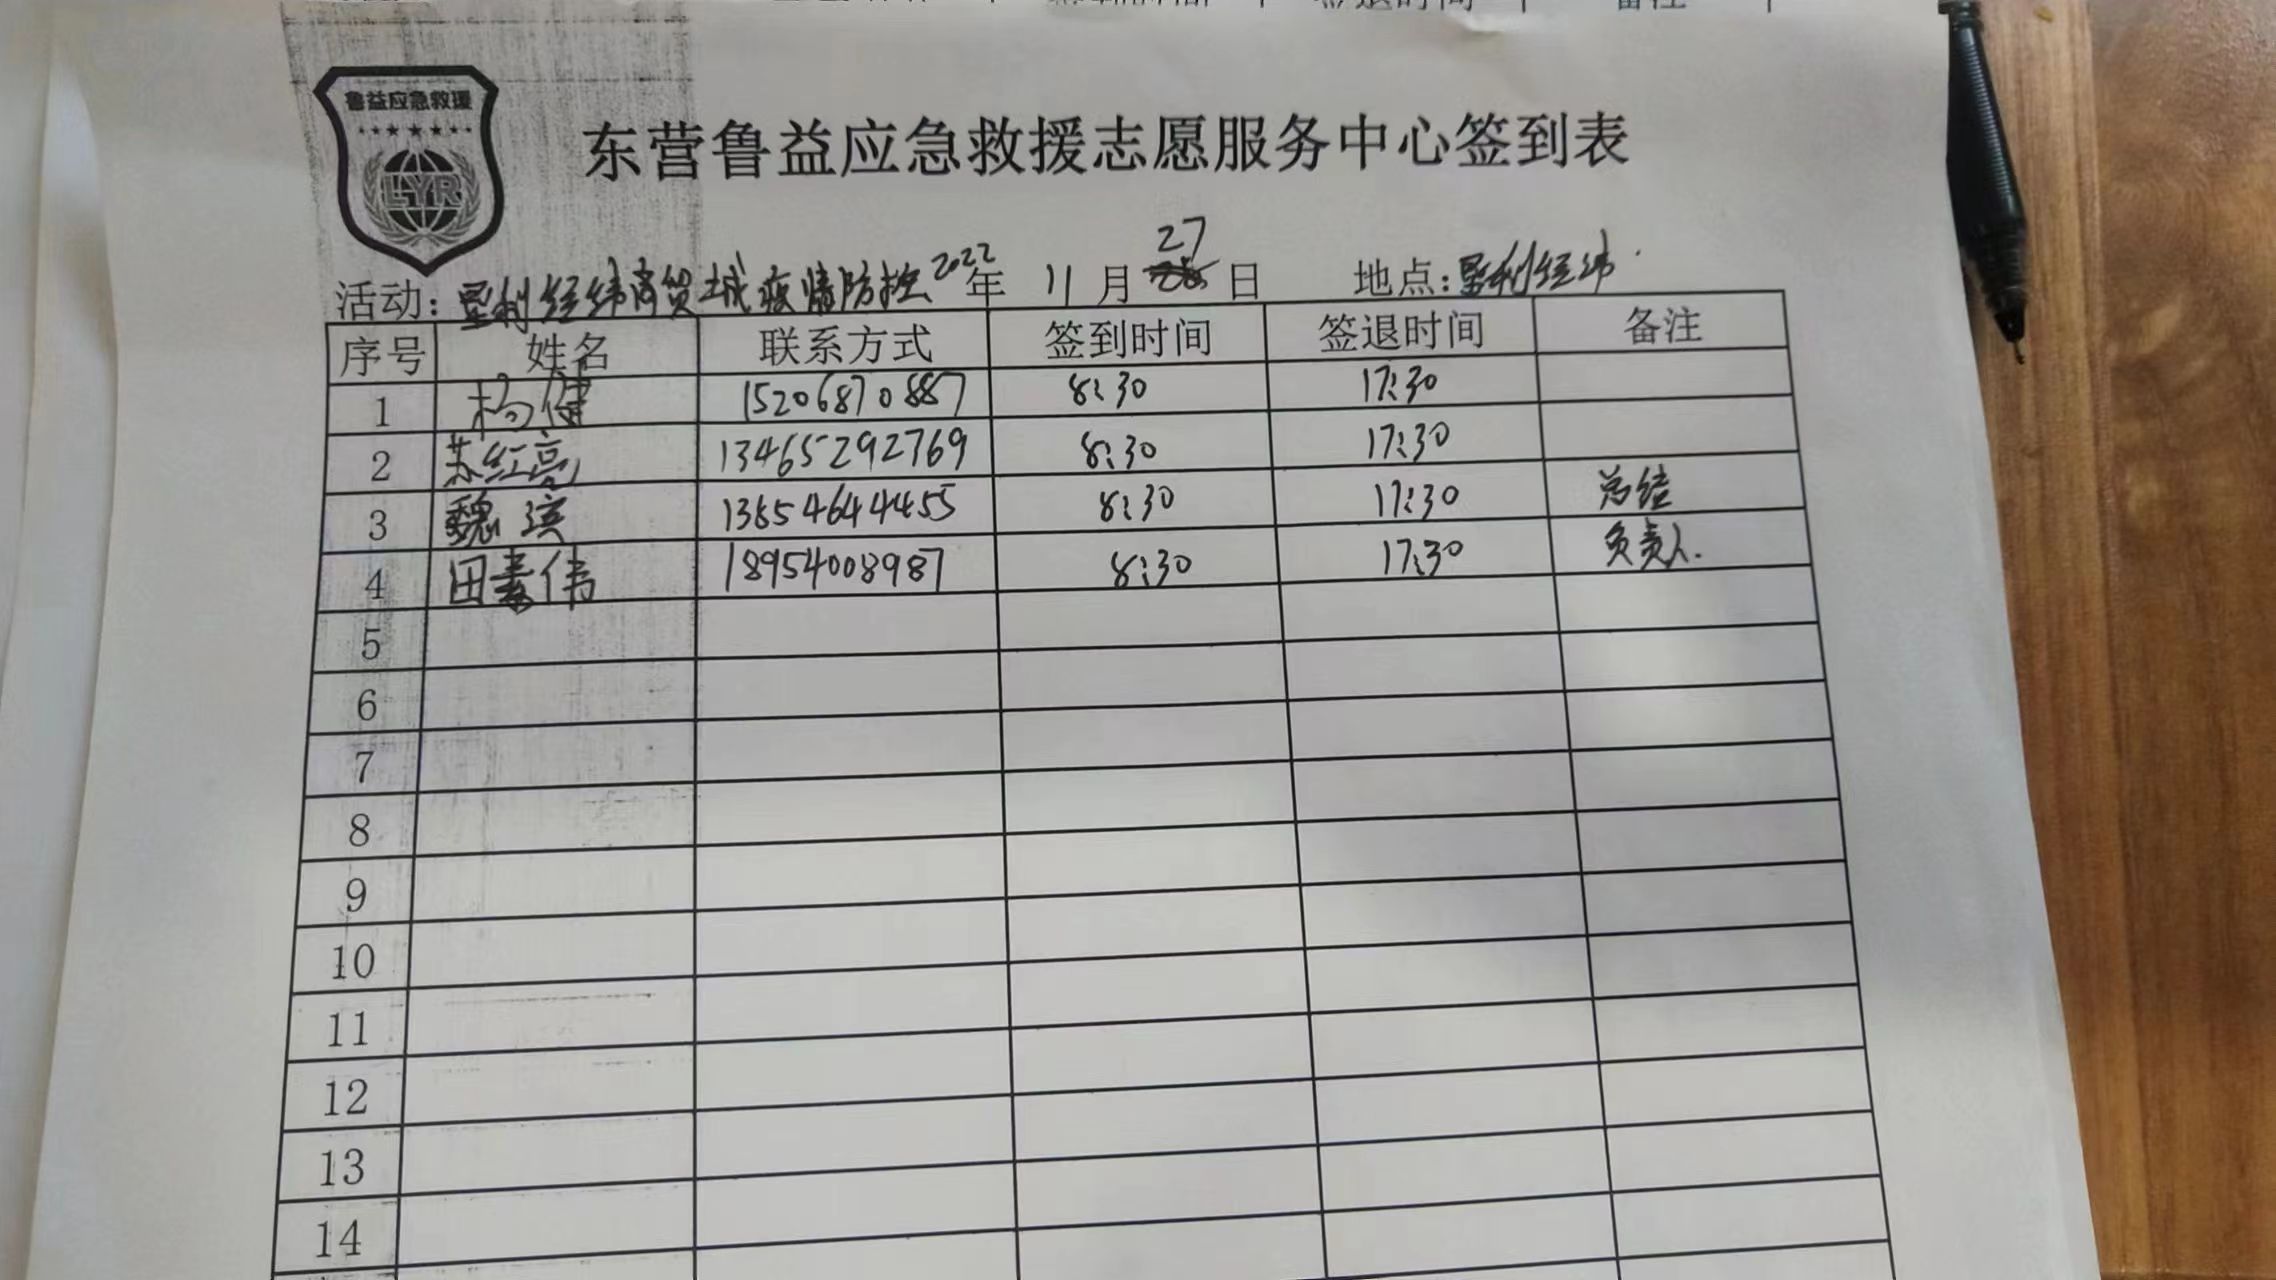 签到时间 签退时间 备注
鲁益应急救援
LYR
东营鲁益应急救援志愿服务中心签到表
活动：垦利经纬商贸城疫情防控 2022年 11月 27日 地点：垦利经纬
序号 姓名 联系方式 签到时间 签退时间 备注
1 杨健 15206870887 8:30 17:30
2 苏红亮 13465292769 8:30 17:30
3 魏滨 13854644455 8:30 17:30 总结
4 田素伟 18954008987 8:30 17:30 负责人.
5
6
7
8
9
10
11
12
13
14